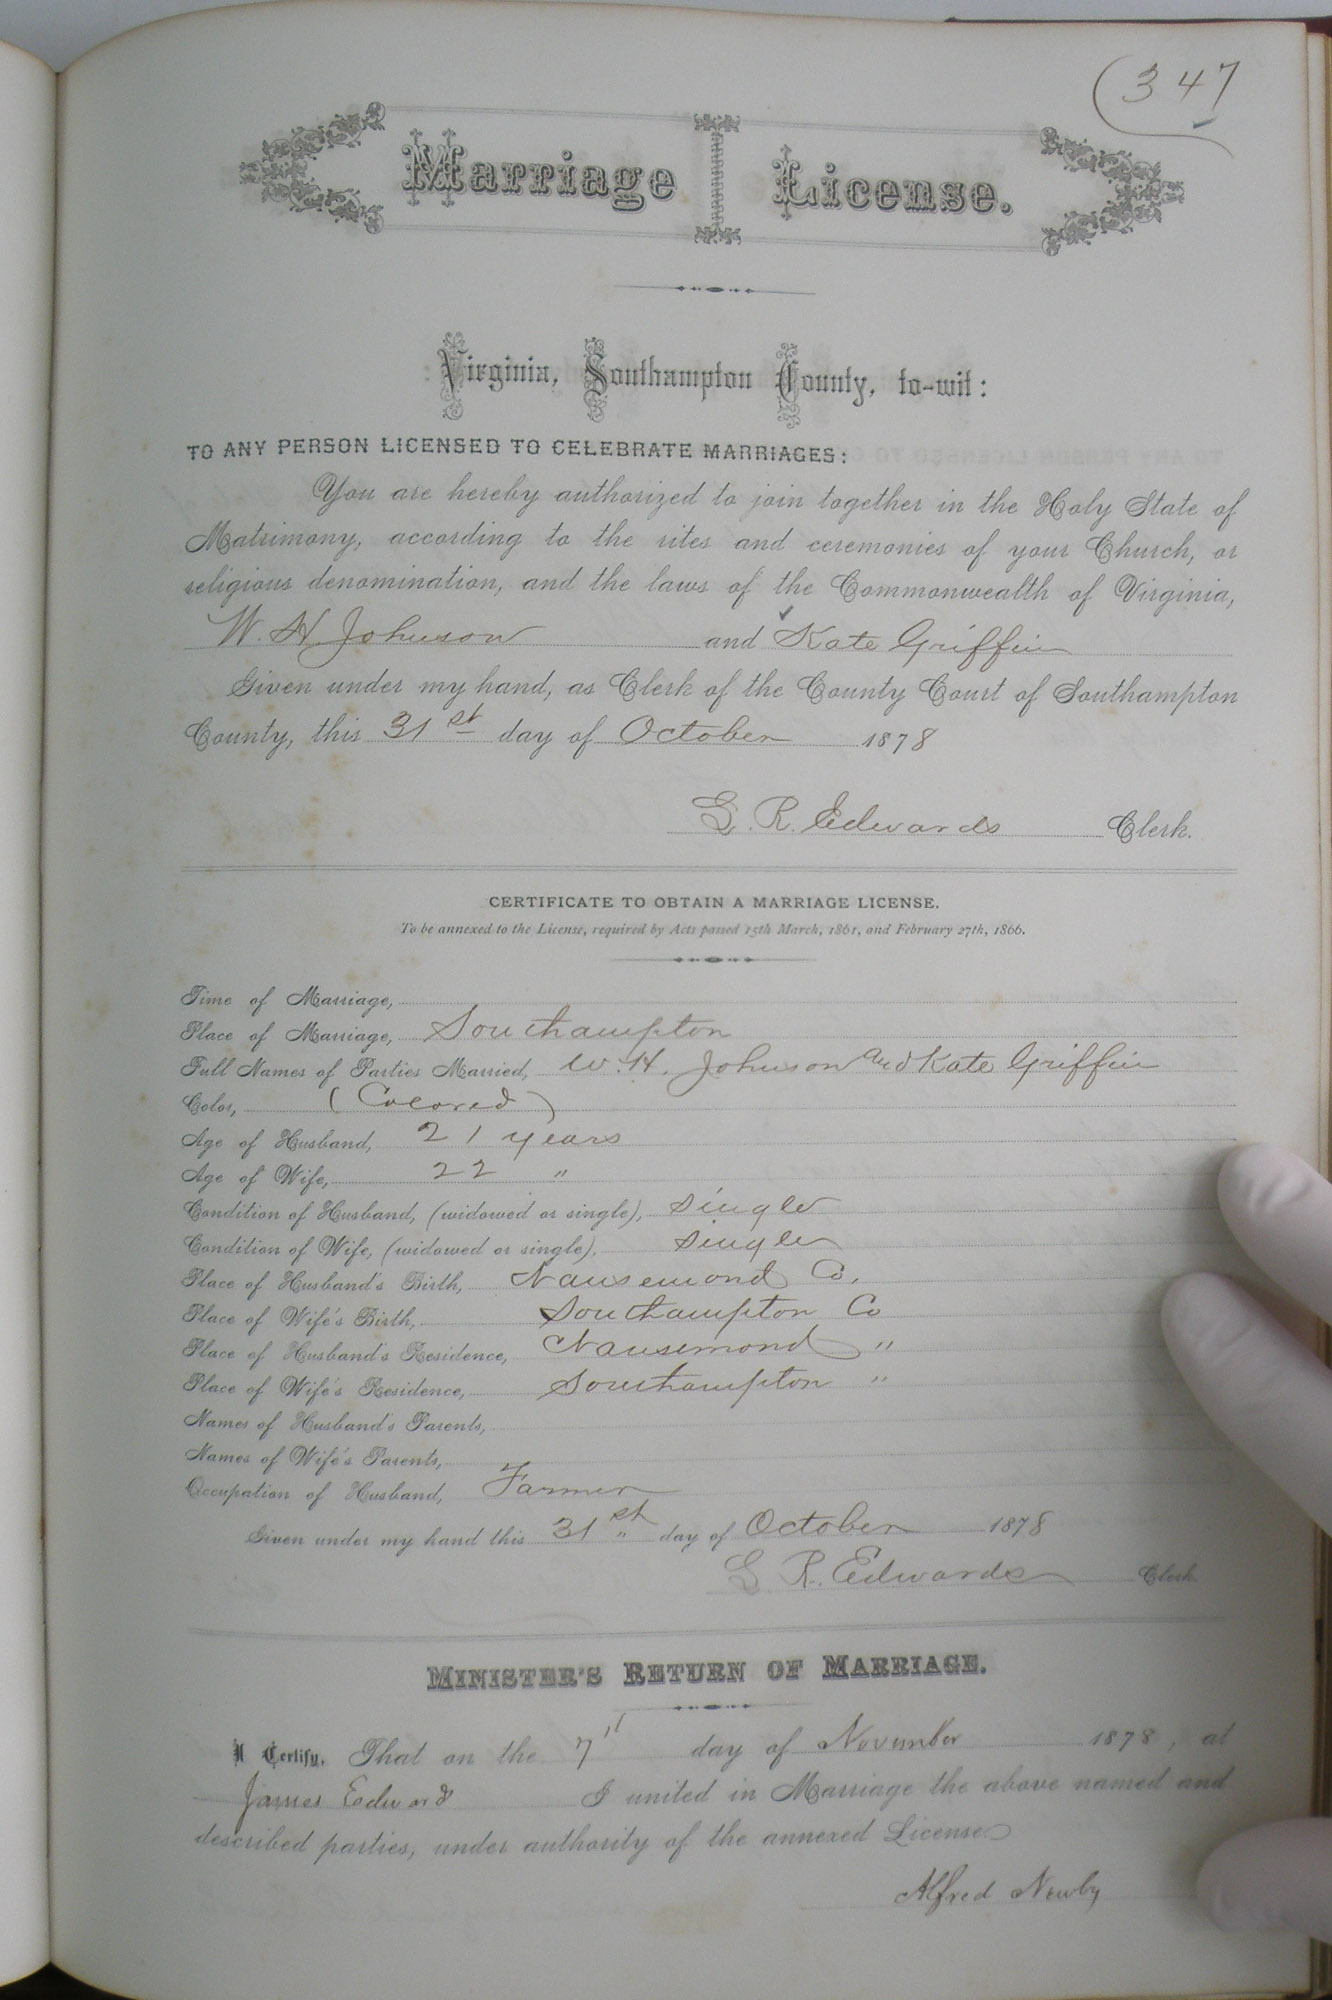 (347
Marriage License.
Virginia, Southampton County, to-wit:
TO ANY PERSON LICENSED TO CELEBRATE MARRIAGES:
You are hereby authorized to join together in the Holy State of
Matrimony, according to the rites and ceremonies of your Church, or
religious denomination, and the laws of the Commonwealth of Virginia,
W. H Johnson and Kate Griffin
Given under my hand, as Clerk of the County Court of Southampton
County, this 31st day of October 1878
L. R. Edwards Clerk.
CERTIFICATE TO OBTAIN A MARRIAGE LICENSE.
To be annexed to the License, required by Acts passed 15th March, 1861, and February 27th, 1866.
Time of Marriage,
Place of Marriage, Southampton
Full Names of Parties Married, W. H. Johnson and Kate Griffin
Color, (Colored)
Age of Husband, 21 years
Age of Wife, 22 "
Condition of Husband, (widowed or single), single
Condition of Wife, (widowed or single), single
Place of Husband's Birth, Nansemond Co.
Place of Wife's Birth, Southampton Co
Place of Husband's Residence, Nansemond "
Place of Wife's Residence, Southampton "
Names of Husband's Parents,
Names of Wife's Parents,
Occupation of Husband, Farmer
Given under my hand this 31st day of October 1878
L R. Edwards Clerk
MINISTER'S RETURN OF MARRIAGE.
I Certify, That on the 7 day of November 1878, at
James Edwards I united in Marriage the above named and
described parties, under authority of the annexed License
Alfred Newby